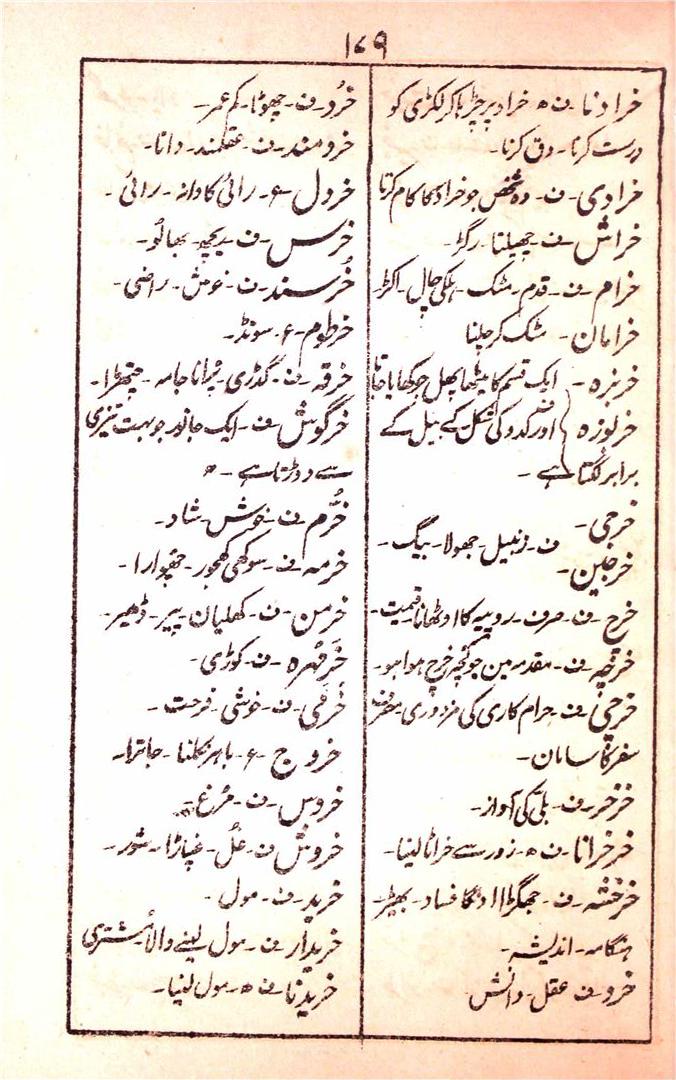 ۱۷۹
خرادنا۔ ف ھ خراد پر چڑہا کر لکڑی کو
درست کرنا۔ دق کرنا۔
خرادی۔ ف۔ وہ شخص جو خراد کا کام کرتا
خراش۔ ف۔ چھیلنا۔ رگڑ۔
خرام۔ ف۔ قدم۔ مٹک۔ ہلکی چال۔ اکڑ
خرامان۔ مٹک کر چلنا
خربزہ۔ ایک قسم کا میٹھا پھل جو کھایا جاتا
خربوزہ اور کدو کی شکل کے بیل کے
برابر لگتا ہے۔
خرجی۔
ف۔ زنبیل۔ جھولا۔ بیگ۔
خرجین۔
خرچ۔ ف۔ صرف۔ روپیہ کا اوٹھانا۔ قیمت۔
خرچہ۔ ف۔ مقدمہ مین جو کچھ خرچ ہوا ہو۔
خرچی۔ ف۔ حرام کاری کی مزدوری۔
سفر کا سامان۔
خرخر۔ ف۔ بلی کی آواز۔
خرخرانا۔ ف ھ۔ زور سے خراٹا لینا۔
خرخشہ۔ ف۔ جھگڑا۔ دنگا فساد۔ بھیڑ۔
ہنگامہ۔ اندیشہ۔
خرد۔ ف عقل۔ دانش
خُرد۔ ف۔ چھوٹا۔ کم عمر۔
خردمند۔ ف۔ عقلمند۔ دانا۔
خردل۔ ع۔ رائی کا دانہ۔ رائی۔
خرس۔ ف۔ ریچھ۔ بھالو۔
خُرسند۔ ف۔ خوش۔ راضی۔
خرطوم۔ ع۔ سونڈ۔
خرقہ۔ ف۔ گدڑی۔ پُرانا جامہ۔ چتھڑا۔
خرگوش۔ ف۔ ایک جانور جو بہت تیزی
سے دوڑتا ہے۔
خُرّم۔ ف۔ خوش۔ شاد۔
خرمہ۔ ف۔ سوکھی کھجور۔ چھوارا۔
خرمن۔ ف۔ کھلیان۔ پیر۔ ڈھیر۔
خَرمُہرہ۔ ف۔ کوڑی۔
خُرمی۔ ف۔ خوشی۔ فرحت۔
خروج۔ ع۔ باہر نکلنا۔ جاترا۔
خروس۔ ف۔ مُرغ۔
خروش۔ ف۔ غُل۔ غپاڑا۔ شور۔
خرید۔ ف۔ مول۔
خریدار۔ ف۔ مول لینے والا۔ مُشتری
خریدنا۔ ف ھ۔ مول لینا۔